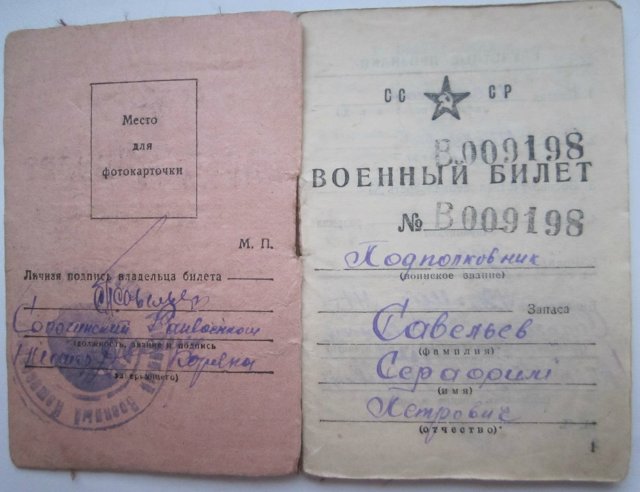 Место
для
фотокарточки
М. П.
Личная подпись владельца билета
Райвоенком
(должность, звание и подпись
заверяющего)
Военный
СС СР
В 009198
ВОЕННЫЙ БИЛЕТ
№ В 009198
Подполковник
(воинское звание)
Запаса
Савельев
(фамилия)
Серафим
(имя)
Петрович
(отчество)
1